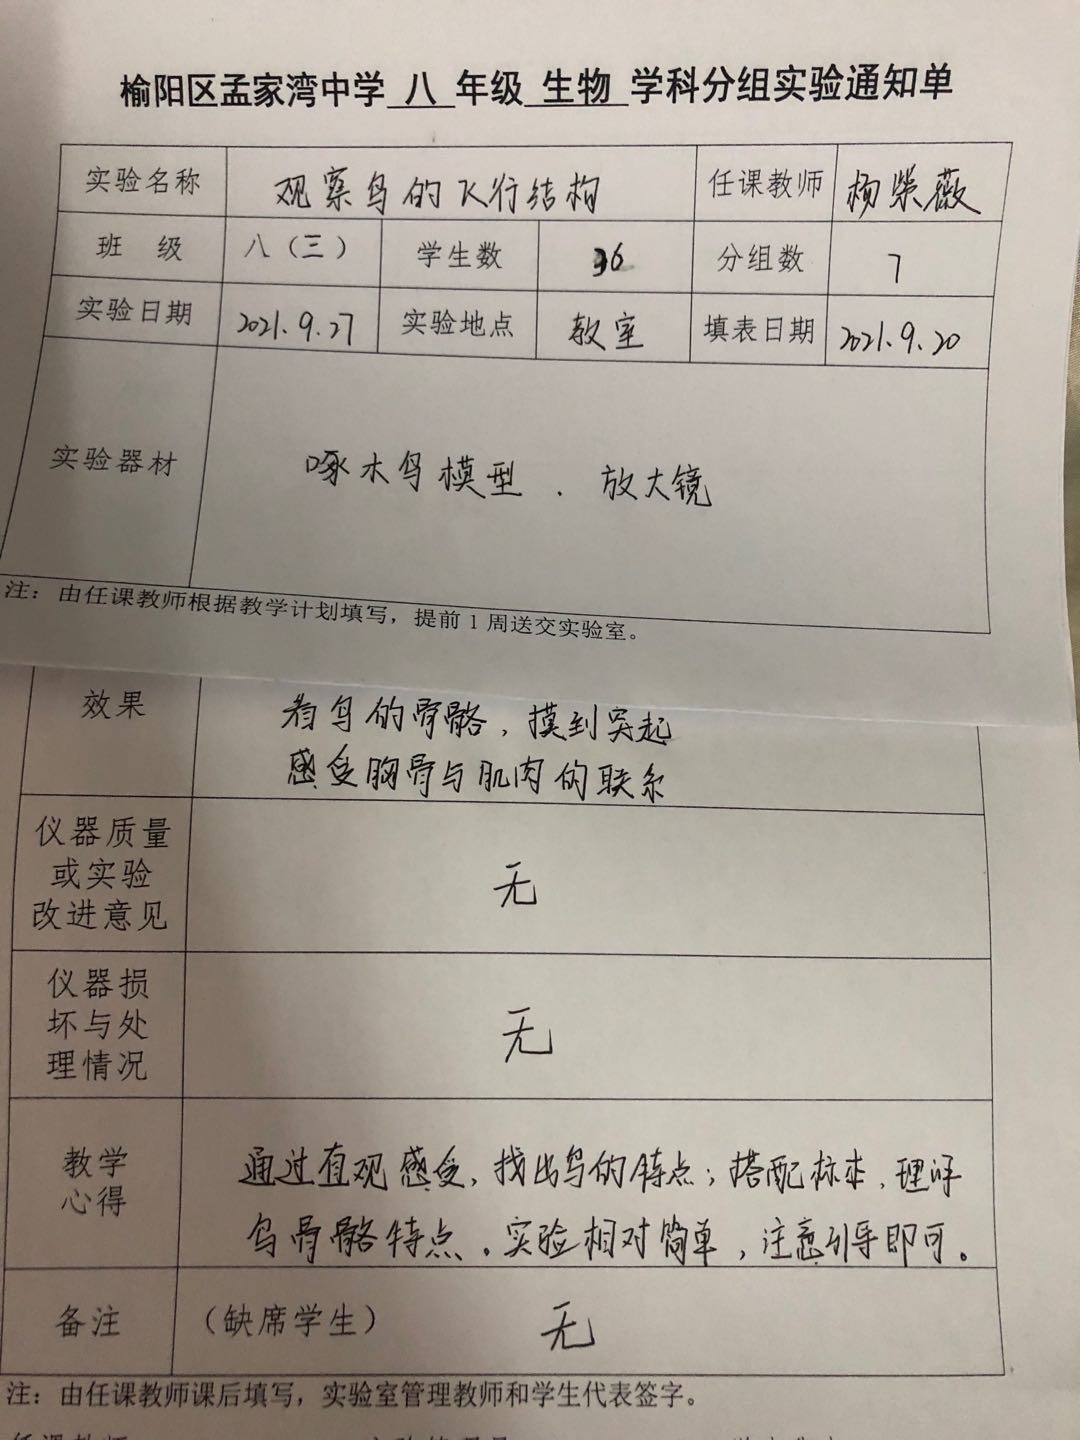 榆阳区孟家湾中学 八 年级 生物 学科分组实验通知单
实验名称 观察鸟的飞行结构 任课教师 杨荣薇
班 级 八(三) 学生数 36 分组数 7
实验日期 2021.9.27 实验地点 教室 填表日期 2021.9.20
实验器材 啄木鸟模型 . 放大镜
注：由任课教师根据教学计划填写，提前1周送交实验室。
效果 看鸟的骨骼，摸到突起
感受胸骨与肌肉的联系
仪器质量
或实验
改进意见 无
仪器损
坏与处
理情况 无
教学
心得 通过直观感受，找出鸟的特点；搭配标本，理解
鸟骨骼特点。实验相对简单，注意引导即可。
备注 (缺席学生) 无
注：由任课教师课后填写，实验室管理教师和学生代表签字。